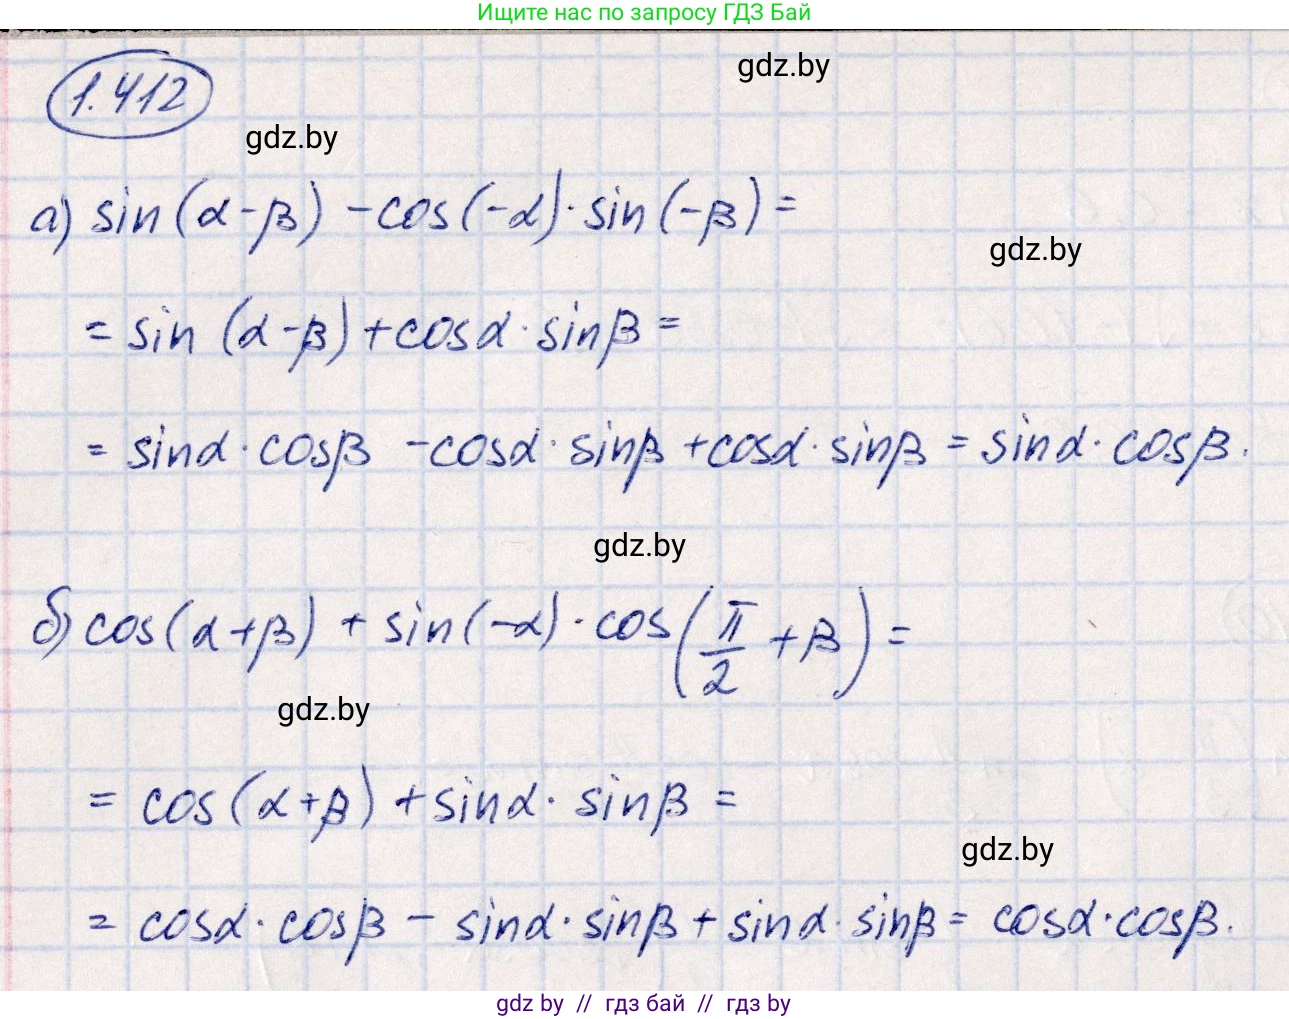 Ищите нас по запросу ГДЗ Бай
1.412
gdz.by
gdz.by
а) sin(α-β) -cos(-α)·sin(-β)=
gdz.by
= sin (α-β)+cosα·sinβ=
= sinα·cosβ -cosα·sinβ +cosα·sinβ = sinα·cosβ.
gdz.by
б) cos(α+β) + sin(-α)·cos(π/2 +β)=
gdz.by
= cos(α+β) +sinα·sinβ =
gdz.by
= cosα·cosβ - sinα·sinβ + sinα·sinβ = cosα·cosβ.
gdz by // гдз бай // гдз by